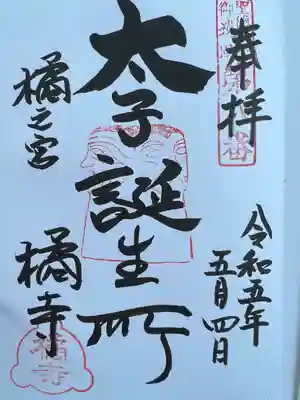 奉拝
令和五年
五月四日
太子誕生所
橘之宮
橘寺
橘寺